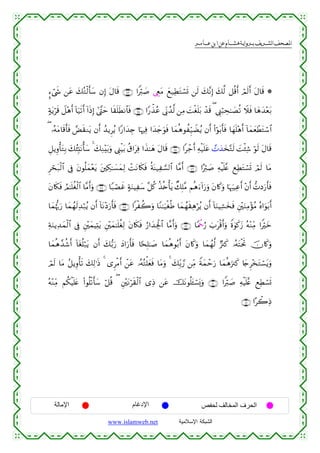 المصحف الشريف برواية هشام عن ابن عامر
* قَالَ أَلَمْ أَقُل لَّكَ إِنَّكَ لَن تَسْتَطِيعَ مَعِي صَبْرًا قَالَ إِن سَأَلْتُكَ عَن شَيْءٍ
بَعْدَهَا فَلَا تُصَاحِبْنِي قَدْ بَلَغْتَ مِن لَّدُنِّي عُذُرًا فَانطَلَقَا حَتَّىٰ إِذَا أَتَيَا أَهْلَ قَرْيَةٍ
اسْتَطْعَمَا أَهْلَهَا فَأَبَوْا أَن يُضَيِّفُوهُمَا فَوَجَدَا فِيهَا جِدَارًا يُرِيدُ أَن يَنقَضَّ فَأَقَامَهُ
قَالَ لَوْ شِئْتَ لَتَّخَذتَّ عَلَيْهِ أَجْرًا قَالَ هَٰذَا فِرَاقُ بَيْنِي وَبَيْنِكَ سَأُنَبِّئُكَ بِتَأْوِيلِ
مَا لَمْ تَسْتَطِع عَّلَيْهِ صَبْرًا أَمَّا السَّفِينَةُ فَكَانَتْ لِمَسَاكِينَ يَعْمَلُونَ فِي الْبَحْرِ
فَأَرَدتُّ أَنْ أَعِيبَهَا وَكَانَ وَرَاءَهُم مَّلِكٌ يَأْخُذُ كُلَّ سَفِينَةٍ غَصْبًا وَأَمَّا الْغُلَامُ فَكَانَ
أَبَوَاهُ مُؤْمِنَيْنِ فَخَشِينَا أَن يُرْهِقَهُمَا طُغْيَانًا وَكُفْرًا فَأَرَدْنَا أَن يُبْدِلَهُمَا رَبُّهُمَا
خَيْرًا مِّنْهُ زَكَاةً وَأَقْرَبَ رُحُمًا وَأَمَّا الْجِدَارُ فَكَانَ لِغُلَامَيْنِ يَتِيمَيْنِ فِي الْمَدِينَةِ
وَكَانَ تَحْتَهُ كَنزٌ لَّهُمَا وَكَانَ أَبُوهُمَا صَالِحًا فَأَرَادَ رَبُّكَ أَن يَبْلُغَا أَشُدَّهُمَا
وَيَسْتَخْرِجَا كَنزَهُمَا رَحْمَةً مِّن رَّبِّكَ وَمَا فَعَلْتُهُ عَنْ أَمْرِي ذَٰلِكَ تَأْوِيلُ مَا لَمْ
تَسْطِع عَّلَيْهِ صَبْرًا وَيَسْأَلُونَكَ عَن ذِي الْقَرْنَيْنِ قُلْ سَأَتْلُوا عَلَيْكُم مِّنْهُ
ذِكْرًا
الحرف المخالف لحفص الإدغام الإمالة
الشبكة الإسلامية www.islamweb.net